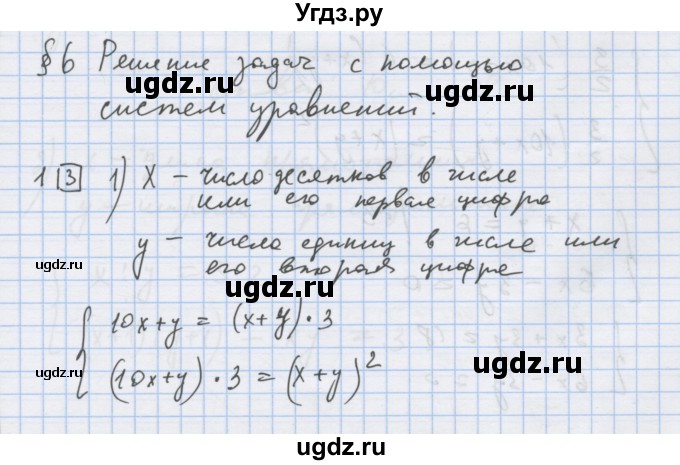 Угдз.ру
§ 6 Решение задач с помощью
систем уравнений.
ugdz.ru ugdz.ru
1 [3] 1) X – число десятков в числе
или его первая цифра
ugdz.ru ugdz.ru
y – число единиц в числе или
его вторая цифра
ugdz.ru ugdz.ru ugdz.ru
10x+y = (x+y)·3
(10x+y)·3 = (x+y)²
ugdz.ru ugdz.ru ugdz.ru
ugdz.ru